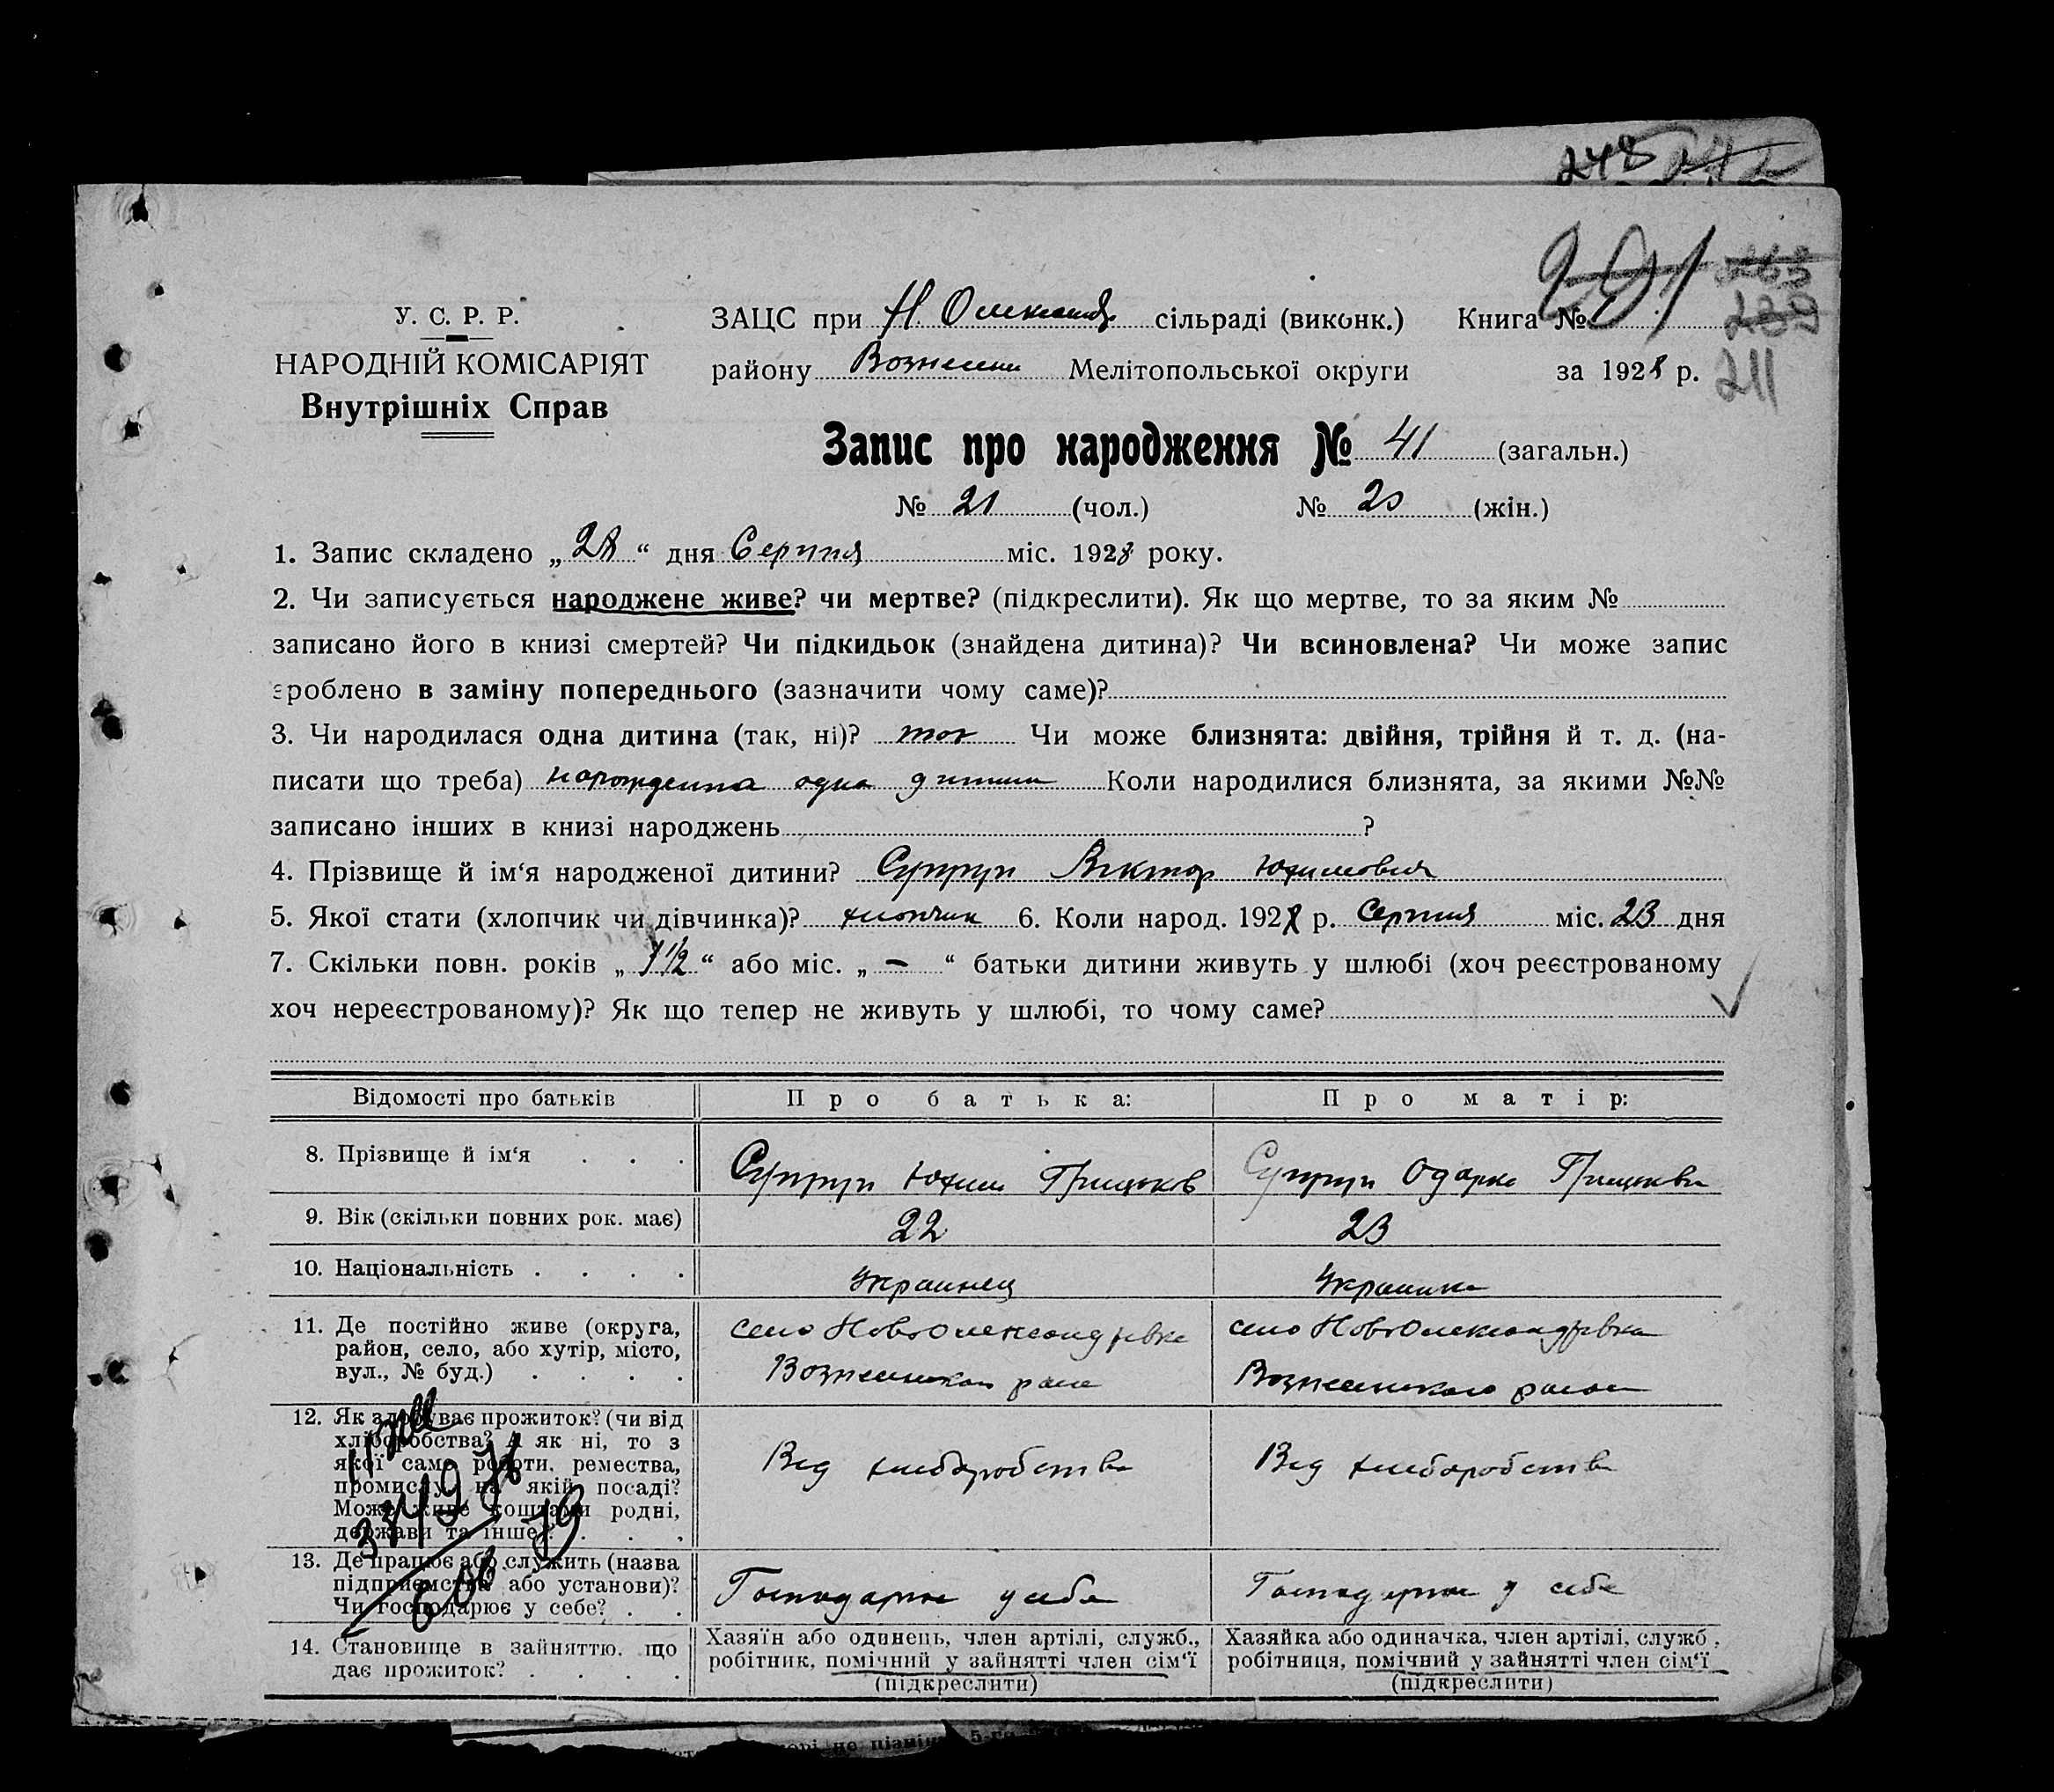 248
201
263
289
211
У. С. Р. Р.
НАРОДНІЙ КОМІСАРІЯТ
Внутрішніх Справ
ЗАЦС при Н. Олександр. сільраді (виконк.) Книга №
району Вознесен Мелітопольської округи за 1928 р.
Запис про народження № 41 (загальн.)
№ 21 (чол.) № 20 (жін.)
1. Запис складено „28“ дня Серпня міс. 1928 року.
2. Чи записується народжене живе? чи мертве? (підкреслити). Як що мертве, то за яким №
записано його в книзі смертей? Чи підкидьок (знайдена дитина)? Чи всиновлена? Чи може запис
зроблено в заміну попереднього (зазначити чому саме)?
3. Чи народилася одна дитина (так, ні)? так Чи може близнята: двійня, трійня й т. д. (на-
писати що треба) нарожденна одна дитина Коли народилися близнята, за якими №№
записано інших в книзі народжень ?
4. Прізвище й ім‘я народженої дитини? Супрун Виктор Юхимович
5. Якої стати (хлопчик чи дівчинка)? хлопчик 6. Коли народ. 1928 р. Серпня міс. 23 дня
7. Скільки повн. років „1½“ або міс. „—“ батьки дитини живуть у шлюбі (хоч реєстрованому
хоч нереєстрованому)? Як що тепер не живуть у шлюбі, то чому саме?
Відомості про батьків Про батька: Про матір:
8. Прізвище й ім‘я . . . Супрун Юхим Грицьков Супрун Одарка Грицькви
9. Вік (скільки повних рок. має) 22 23
10. Національність . . . . Украинец Украинка
11. Де постійно живе (округа, район, село, або хутір, місто, вул., № буд.) . . . .
село НовоОлександрвка
Вознесенкаго раена
село НовоОлександрвка
Вознесенкаго раена
12. Як здобуває прожиток? (чи від хліборобства? А як ні, то з якої саме роботи, ремества, промислу, на якій посаді? Може живе коштами родні, держави та інше) . . . .
Вид хлиборобства
Вид хлиборобства
13. Де працює або служить (назва підприємства або установи)? Чи господарює у себе? . .
Господарює у себе
Господарює у себе
14. Становище в зайняттю, що дає прожиток? . . . .
Хазяїн або одинець, член артілі, служб., робітник, помічний у зайнятті член сім‘ї (підкреслити)
Хазяйка або одиначка, член артілі, служб., робітниця, помічний у зайнятті член сім‘ї (підкреслити)